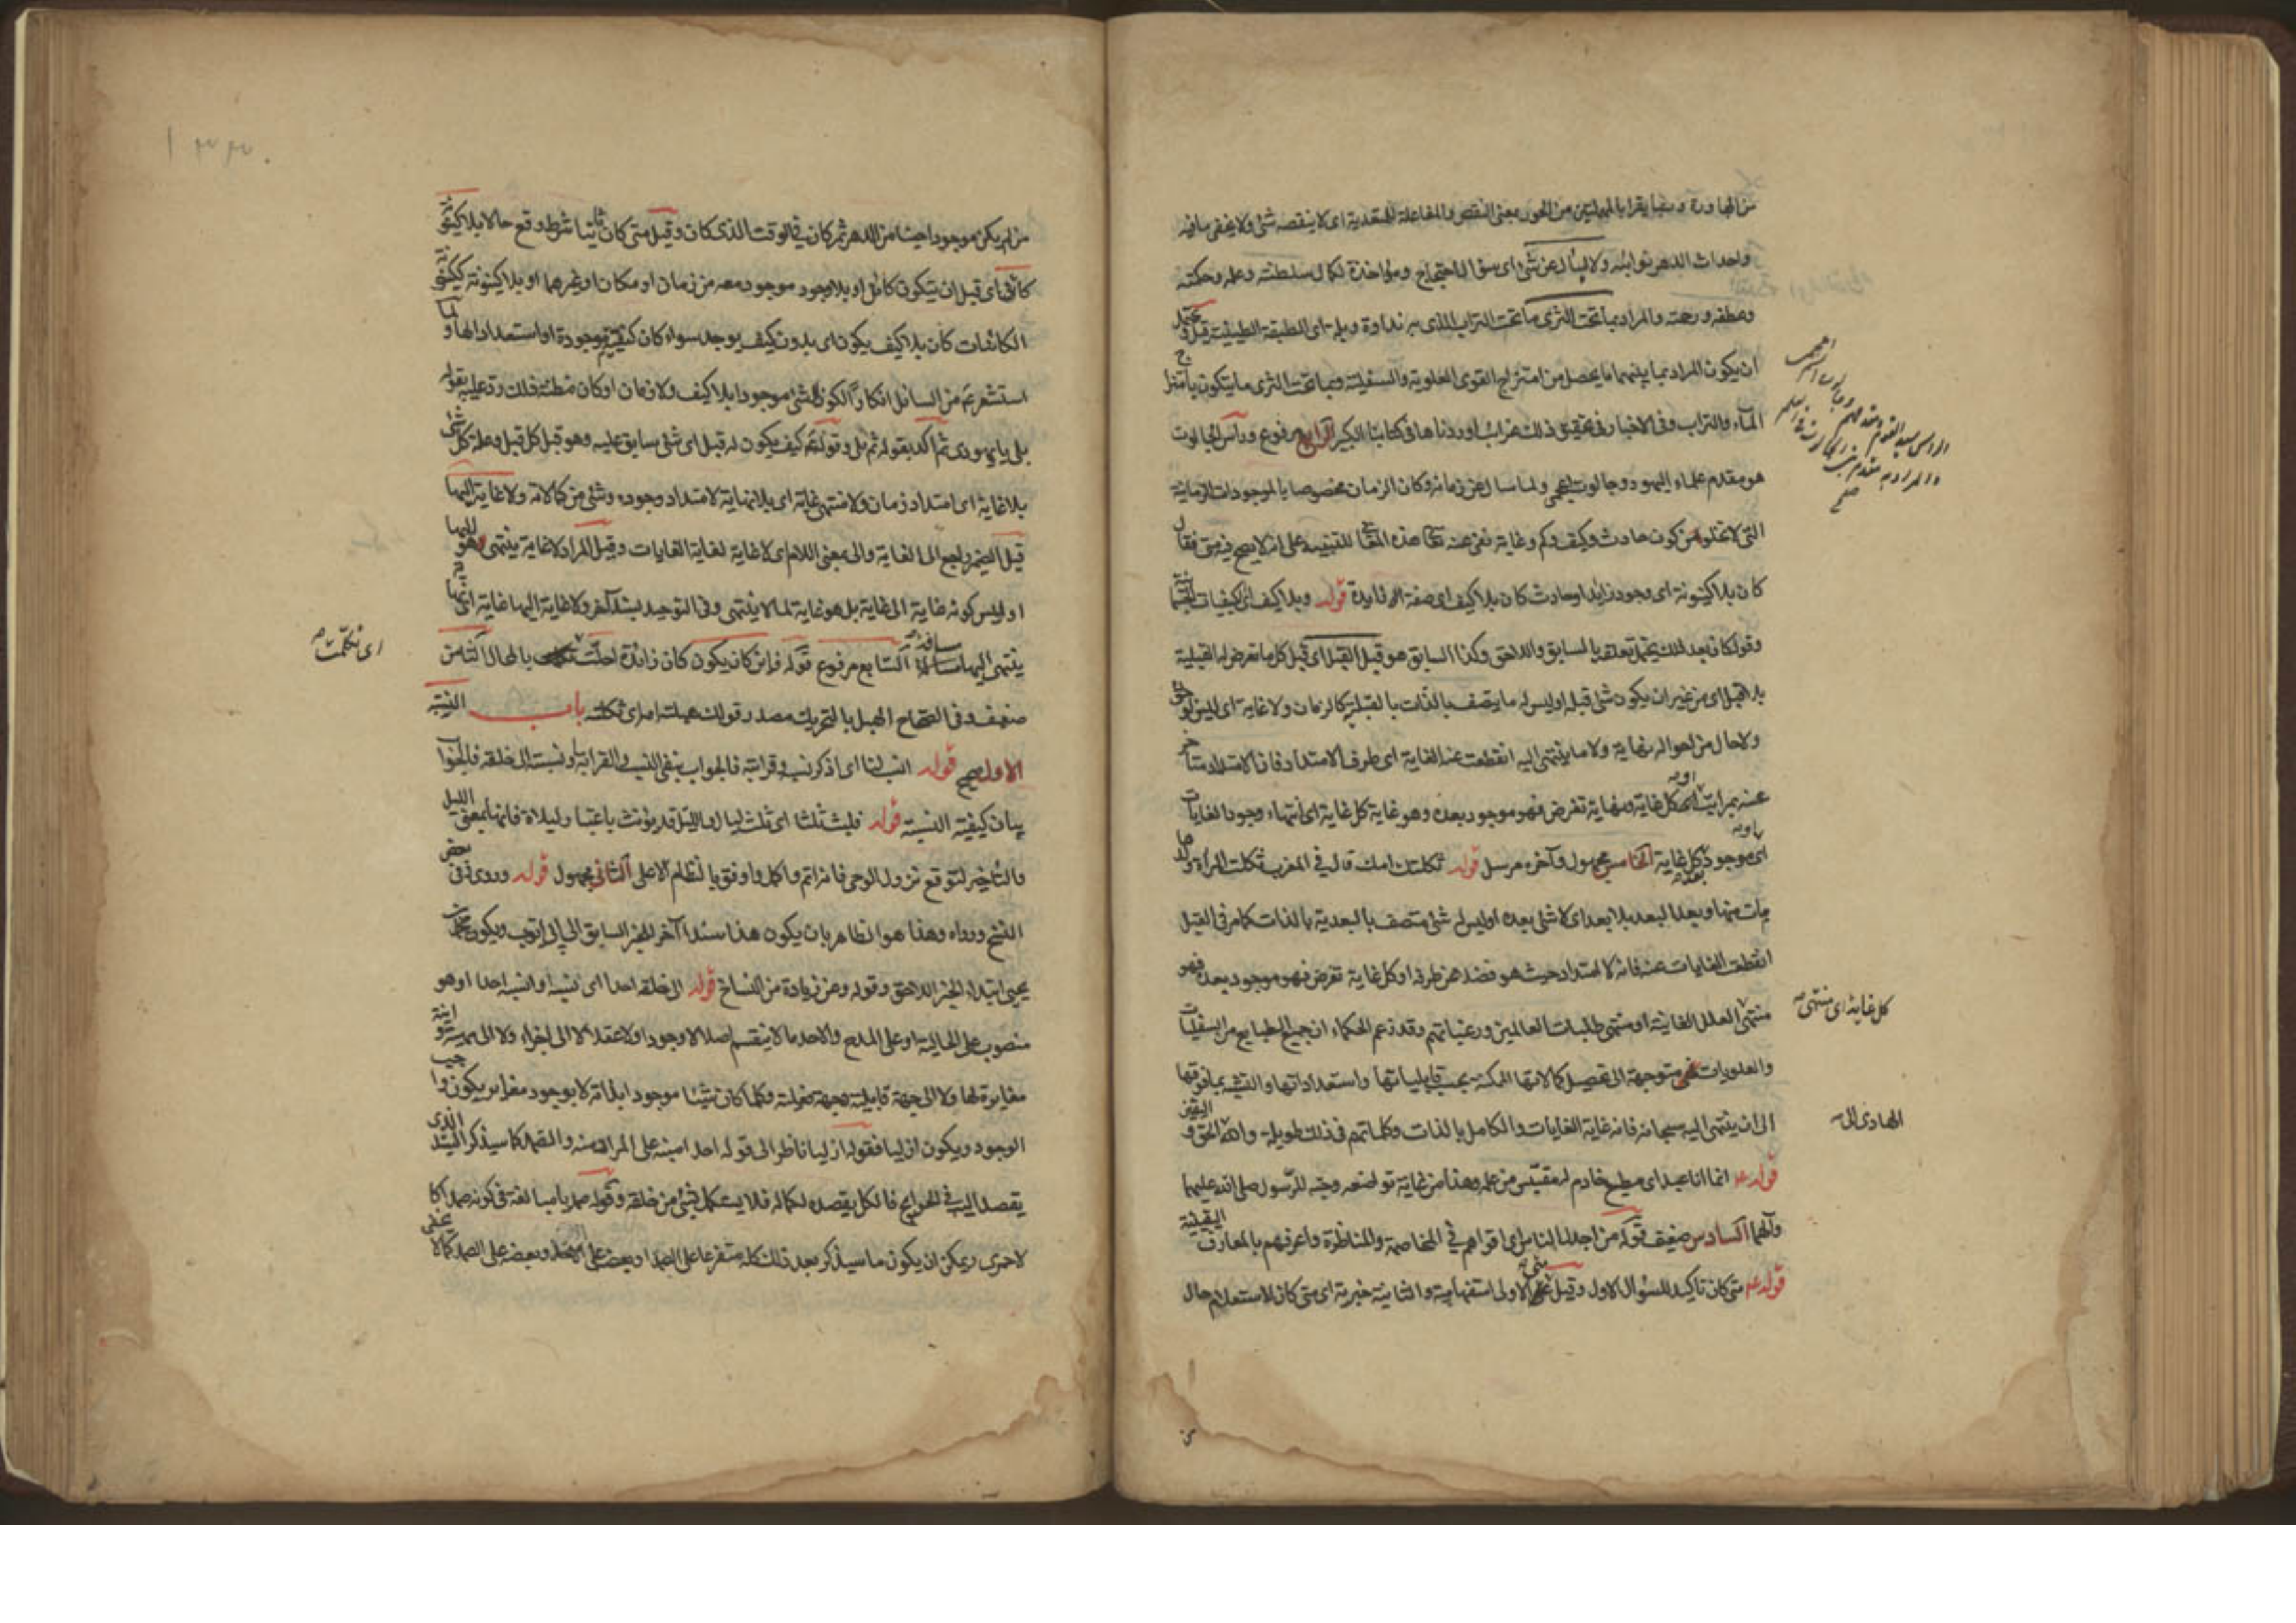 من المحاورة وربما يقرأ بالمهملتين من الحور بمعنى النقص والمفاعلة للتعدية اى لا ينقصه شئ ولا يخفى ما فيه
واحداث الدهر نوائبه ولا يسأل عن شئ اى سؤال احتجاج ومؤاخذة لكمال سلطنته وعلمه وحكمته
وعطفه ورحمته والمراد بما تحت الثرى ما تحت التراب الذى به نداوة وبلة اى الطبقة الطينية قيل و يحتمل
ان يكون المراد بما بينهما ما يحصل من امتزاج القوى العلوية والسفلية وبما تحت الثرى ما يتكون بامتزاج
الماء والتراب وفى الاخبار فى تحقيق ذلك غرائب اوردناها فى كتابنا الكبير الرابع مرفوع ورأس الجالوت
هو مقدم علماء اليهود وجالوت اعجمى ولما سأل عن زمانه وكان الزمان مخصوصا بالموجودات الزمانية
التى لا تخلو من كون حادث وكيف وكم وغاية نفى عنه تعالى هذه المعانى للتنبيه على انه لا يصح فيه متى فقال
كان بلا كينونة اى وجود زايد او حادث كان بلا كيف اى صفة زايدة قوله وبلا كيف اى الكيفيات الجسمانية
وقوله كان بعد ذلك يحتمل تعلقه بالسابق واللاحق وكذا السابق هو قبل القبل اى قبل كل ما تعرض له القبلية
بلا قبل اى من غير ان يكون شئ قبله او ليس له ما يتصف بالذات بالقبلية كالزمان ولا غاية اى ليس لوجوده
ولا حال من احواله نهاية ولا ما ينتهى اليه انقطعت عند الغاية اى طرف الامتداد فانه الامتداد متأخر
عنه بمراتب او كل غاية ونهاية تفرض فهو موجود بعده وهو غاية كل غاية اى انتهاء وجود الغايات
اى موجود بعد كل غاية الخامس مجهول وآخره مرسل قوله ثكلتك امك قال فى المغرب ثكلت المرأة ولدها
مات منها وبعد البعد بلا بعد اى لا شئ بعده او ليس له شئ متصف بالبعدية بالذات كما مر فى القبل
انقطعت الغايات عنده فانه لا امتداد حيث هو فضلا عن طرفه او كل غاية تفرض فهو موجود بعده فهو
منتهى العلل الغائية او منتهى طلبات العالمين ورغباتهم وقد زعم الحكماء ان جميع الطبايع من السفليات
والعلويات متوجهة الى تحصيل كمالاتها الممكنة بحسب قابلياتها واستعداداتها والتشبه بما فوقها
الى ان ينتهى اليه سبحانه فانه غاية الغايات والكامل بالذات وكلماتهم فى ذلك طويلة والله الحق و اليقين
قوله ع انما انا عبد اى مطيع خادم له مقتبس من علمه وهذا من غاية تواضعه وحبه للرسول صلى الله عليهما
وآلهما السادس ضعيف قوله من اجدل الناس اى اقواهم فى المخاصمة والمناظرة واعرفهم بالمعارف اليقينية
قوله ع متى كان تاكيد للسؤال الاول وقيل متى الاولى استفهامية والثانية خبرية اى متى كان للاستعلام حال
الهادى الى
كل غاية اى منتهى
من لم يكن موجودا حينا من الدهر ثم كان فى الوقت الذى كان وقيل متى كان ثانيا شرط وقع حالا بلا كينونة
كائن اى قبل ان يتكون كائن او بلا وجود موجود معه من زمان او مكان او غيرهما او بلا كينونة ككينونة
الكائنات كان بلا كيف يكون اى بدون كيف يوجد سواء كان كيفيته موجودة او استعداد الها و لما
استشعر ع من السائل انكار الكون الشئ موجودا بلا كيف ولا زمان او كان مظنة ذلك رد عليه بقوله
بلى يا يهودى ثم اكد بقوله ثم بلى وقوله ع كيف يكون له قبل اى شئ سابق عليه وهو قبل كل قبل وعلة كل شئ
بلا غاية اى امتداد زمان ولا منتهى غاية اى بلا نهاية لامتداد وجوده وشئ من كمالاته ولا غاية اليها
قيل الضمير راجع الى الغاية والى بمعنى اللام اى لا غاية لغاية الغايات وقيل المراد لا غاية ينتهى هو اليها
او ليس كونه غاية الى غاية بل هو غاية لما لا ينتهى وفى التوحيد بسند آخر ولا غاية اليها غاية اى نهاية
ينتهى اليها مسافة السابع مرفوع قوله فاين كان يكون كان زائدة احلت بالحال الثامن
ضعيف وفى الصحاح الهبل بالتحريك مصدر قولك هبلته امه اى ثكلته باب النسبة
الاول صحيح قوله انسب لنا اى اذكر نسبه وقرابته فالجواب بنفى النسب والقرابة او نسبته الى خلقه فالجواب
بيان كيفية النسبة قوله فلبث ثلثا اى ثلث ليال والليل قد يؤنث باعتبار ليلاة فانها بمعنى الليل
والتاخير لتوقع نزول الوحى فانه اتم واكمل واوفق بالنظام الاعلى الثانى مجهول قوله وروى فى بعض
النسخ ورواه وهذا هو الظاهر بان يكون هذا سندا آخر للخبر السابق الى ابى ايوب ويكون محمد بن
يحيى ابتداء الخبر اللاحق وقوله وعن زيادة من النساخ قوله الى خلقه احدا اى نسبه او انسبه احدا او هو
منصوب على الحالية او على المدح والاحد ما لا ينقسم اصلا لا وجودا ولا عقلا لا الى اجزاء ولا الى
مغايرة لها ولا الى جهة قابلية وجهة فعلية وكلما كان شيئا موجودا بذاته لا بوجود مغاير يكون واجب
الوجود ويكون ازليا فقوله ازليا ناظر الى قوله احد امينه على المراد منه والصمد كما سيذكر السيد الذى
يقصد اليه فى الحوايج فالكل يقصده لكماله فلا يستكمل بشئ من خلقه وقوله صمديا مبالغة فى كونه صمدا كما
لاحرى ويمكن ان يكون ما سيذكر بعد ذلك كله متفرعا على الصمد او بعضه على الاحد وبعضه على الصمد
اى تكلمت